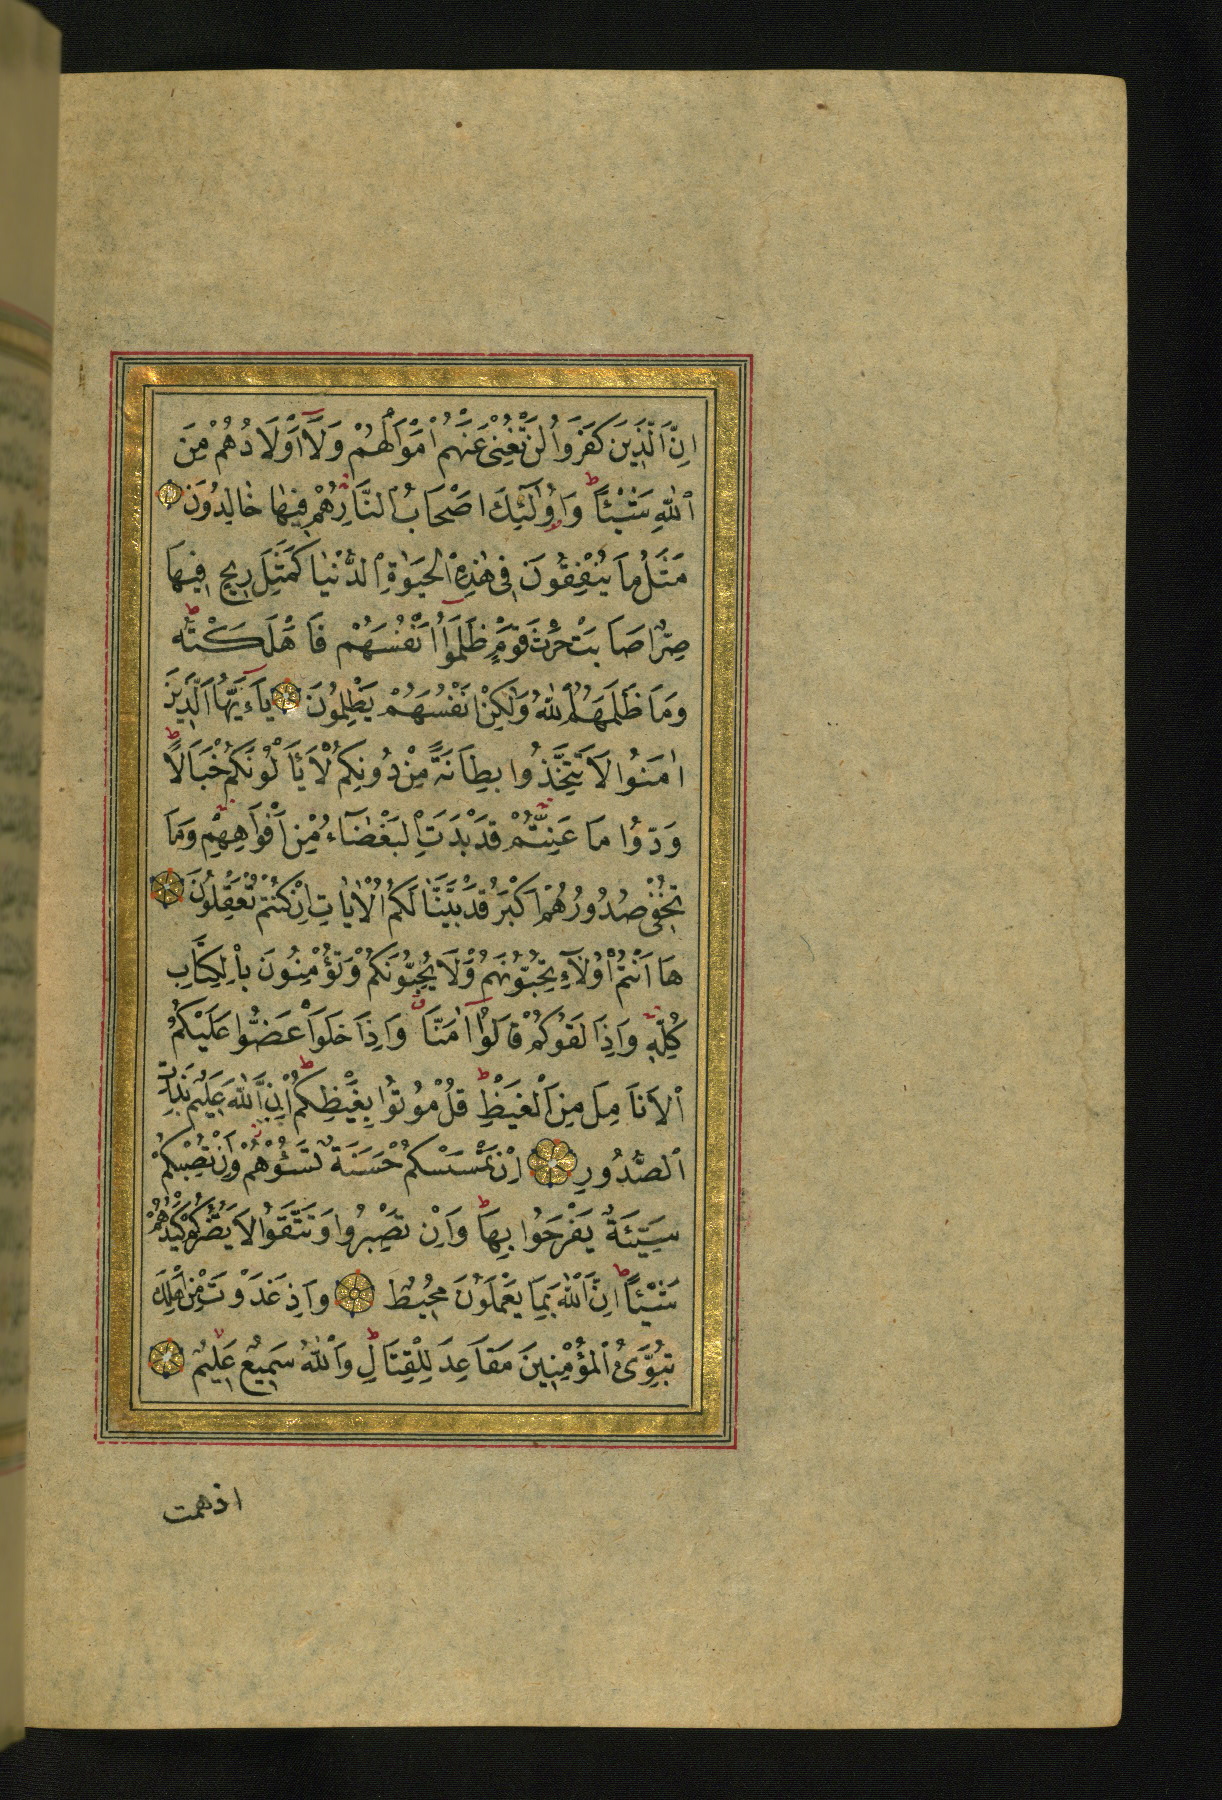 اِنَّ الَّذِينَ كَفَرُوا لَنْ تُغْنِيَ عَنْهُمْ اَمْوَالُهُمْ وَلَآ اَوْلَادُهُمْ مِنَ
اللّٰهِ شَيْئًا ط وَاُولٰٓئِكَ اَصْحَابُ النَّارِ هُمْ فِيهَا خَالِدُونَ
مَثَلُ مَا يُنْفِقُونَ فِي هٰذِهِ الْحَيٰوةِ الدُّنْيَا كَمَثَلِ رِيحٍ فِيهَا
صِرٌّ اَصَابَتْ حَرْثَ قَوْمٍ ظَلَمُوٓا اَنْفُسَهُمْ فَاَهْلَكَتْهُ ط
وَمَا ظَلَمَهُمُ اللّٰهُ وَلٰكِنْ اَنْفُسَهُمْ يَظْلِمُونَ يَآءَيُّهَا الَّذِينَ
اٰمَنُوا لَا تَتَّخِذُوا بِطَانَةً مِنْ دُونِكُمْ لَا يَأْلُونَكُمْ خَبَالًا ط
وَدُّوا مَا عَنِتُّمْ قَدْ بَدَتِ الْبَغْضَآءُ مِنْ اَفْوَاهِهِمْ وَمَا
تُخْفِي صُدُورُهُمْ اَكْبَرُ قَدْ بَيَّنَّا لَكُمُ الْاٰيَاتِ اِنْ كُنْتُمْ تَعْقِلُونَ
هَا اَنْتُمْ اُولَآءِ تُحِبُّونَهُمْ وَلَا يُحِبُّونَكُمْ وَتُؤْمِنُونَ بِالْكِتَابِ
كُلِّهِ وَاِذَا لَقُوكُمْ قَالُوٓا اٰمَنَّا وَاِذَا خَلَوْا عَضُّوا عَلَيْكُمُ
الْاَنَامِلَ مِنَ الْغَيْظِ ط قُلْ مُوتُوا بِغَيْظِكُمْ ط اِنَّ اللّٰهَ عَلِيمٌ بِذَاتِ
الصُّدُورِ اِنْ تَمْسَسْكُمْ حَسَنَةٌ تَسُؤْهُمْ وَاِنْ تُصِبْكُمْ
سَيِّئَةٌ يَفْرَحُوا بِهَا ط وَاِنْ تَصْبِرُوا وَتَتَّقُوا لَا يَضُرُّكُمْ كَيْدُهُمْ
شَيْئًا ط اِنَّ اللّٰهَ بِمَا يَعْمَلُونَ مُحِيطٌ وَاِذْ غَدَوْتَ مِنْ اَهْلِكَ
تُبَوِّئُ الْمُؤْمِنِينَ مَقَاعِدَ لِلْقِتَالِ ط وَاللّٰهُ سَمِيعٌ عَلِيمٌ
اذ همت